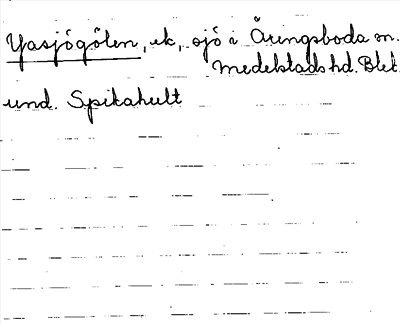 Yasjögölen, ek, sjö i Äringsboda sn.
Medelstads hd. Blek.
und. Spikahult